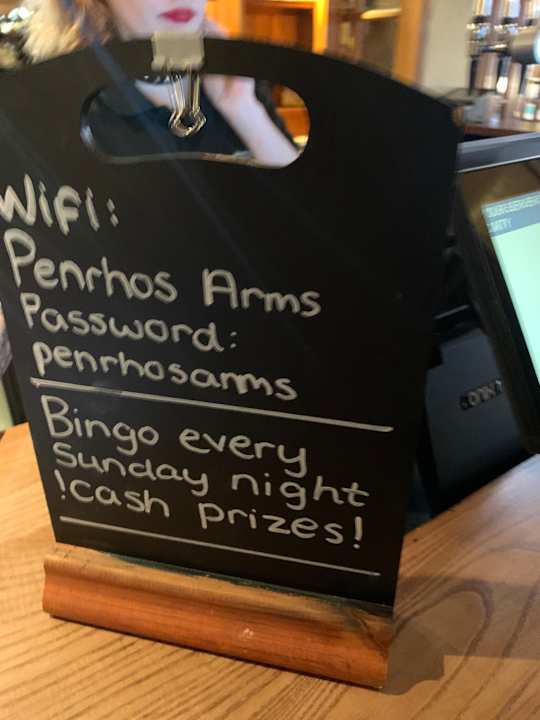 Wifi:
Penrhos Arms
Password:
penrhosarms
Bingo every
Sunday night
!cash prizes!